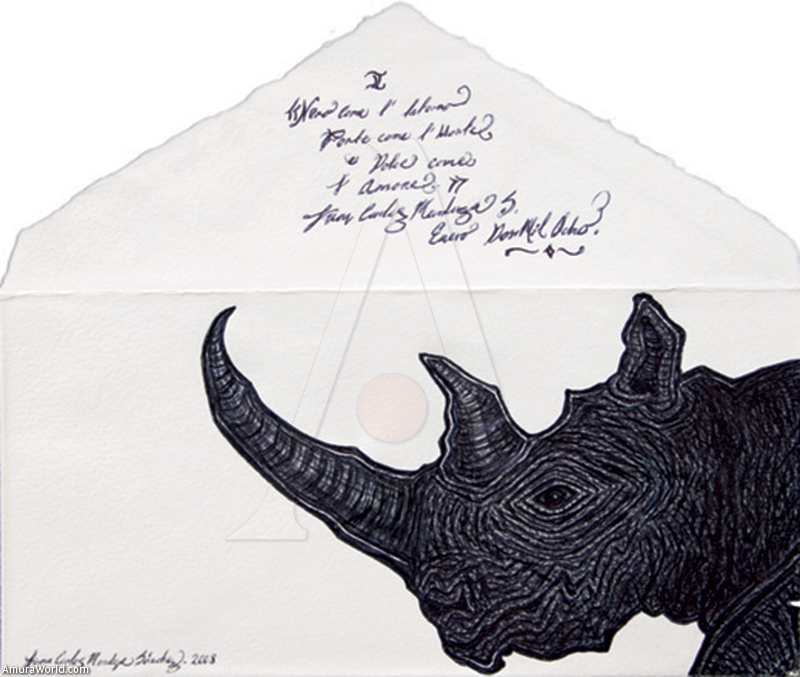 I
"Nero come l'Inferno
Forte come l'Morte
e Dolce come
l'Amore"
Juan Carlos Mendoza S.
Enero Dos Mil Ocho.
Juan Carlos Mendoza Sánchez. 2008
AmuraWorld.com